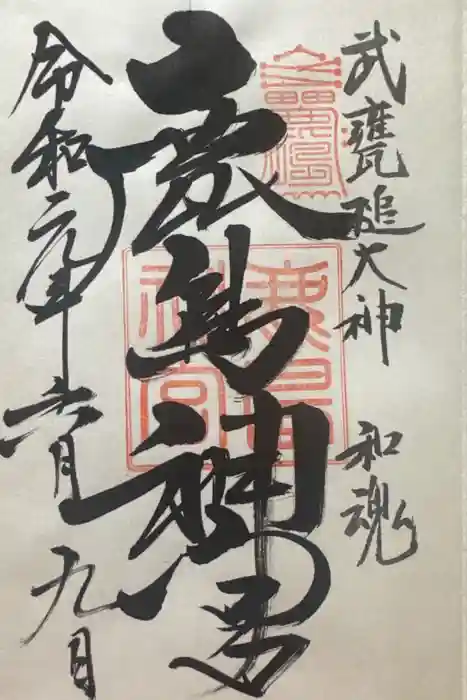 武甕槌大神 和魂
鹿島神宮
令和元年六月九日